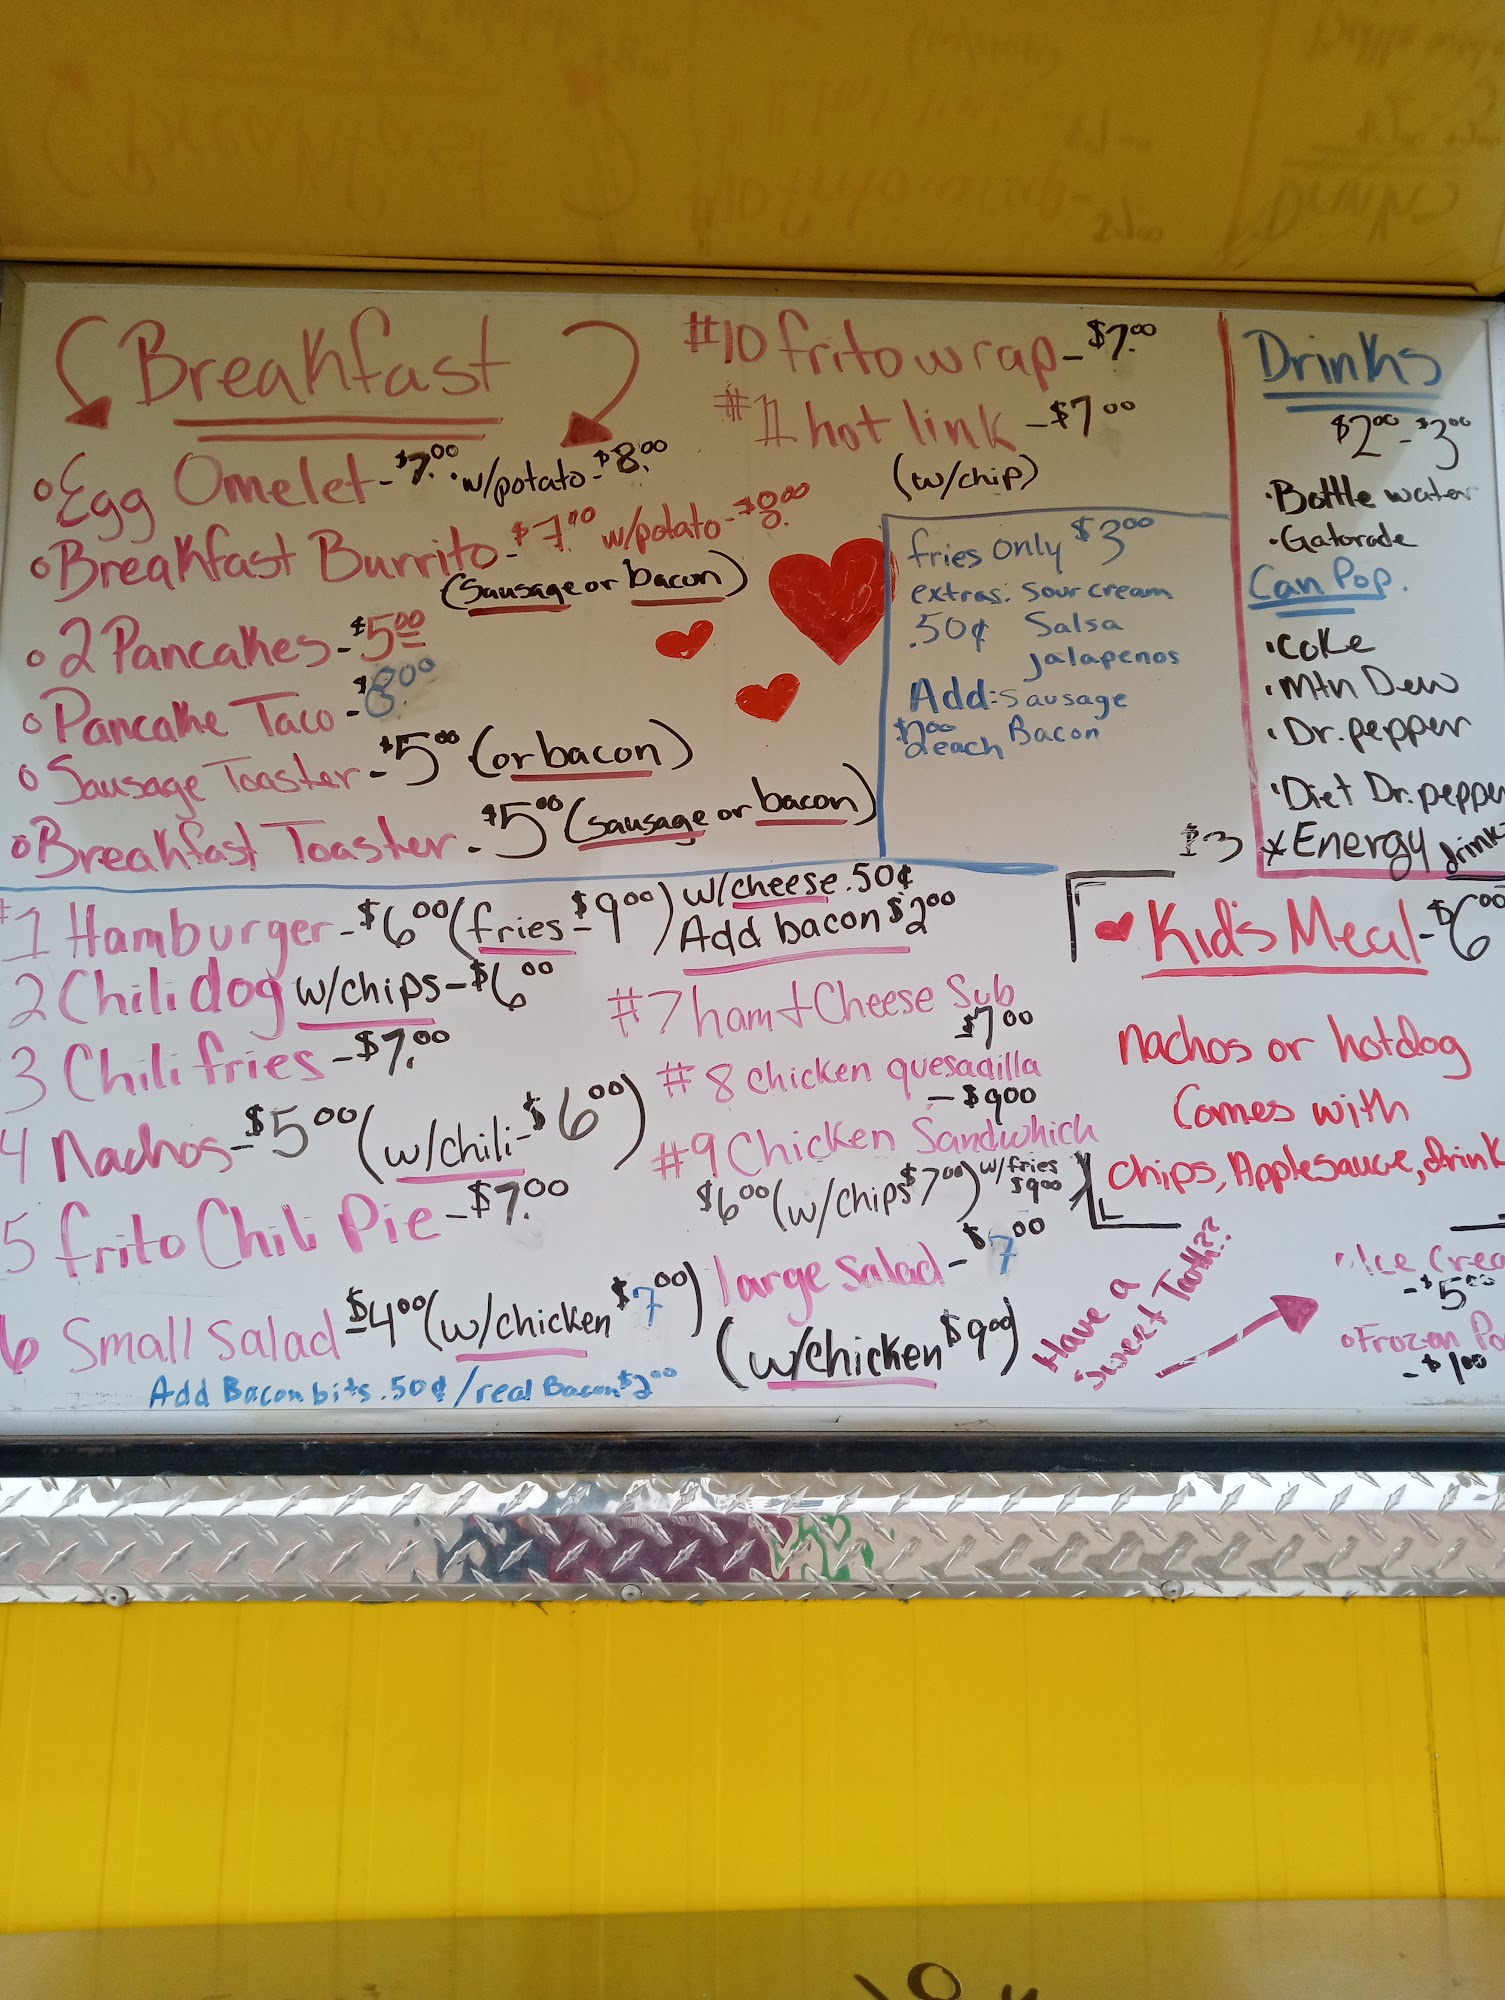 Breakfast
•Egg Omelet-$7.00 w/potato-$8.00
•Breakfast Burrito-$7.00 w/potato-$8.00
(sausage or bacon)
•2 Pancakes-$5.00
•Pancake Taco-$8.00
•Sausage Toaster-$5.00 (or bacon)
•Breakfast Toaster-$5.00 (sausage or bacon)
#10 frito wrap-$7.00
#11 hot link-$7.00
(w/chip)
fries only $3.00
extras: sour cream
.50¢ Salsa
jalapenos
Add:sausage
$2.00 each Bacon
Drinks
$2.00-$3.00
•Bottle water
•Gatorade
Can Pop.
•Coke
•Mtn Dew
•Dr.pepper
•Diet Dr.pepper
$3 *Energy drink
#1 Hamburger-$6.00(fries-$9.00) w/cheese .50¢
Add bacon $2.00
2 Chili dog w/chips-$6.00
3 Chili fries-$7.00
4 Nachos-$5.00(w/chili-$6.00)
5 frito Chili Pie-$7.00
6 Small salad $4.00(w/chicken $7.00)
Add Bacon bits .50¢/real Bacon $2.00
#7 ham+Cheese Sub
$7.00
#8 chicken quesadilla
-$9.00
#9 Chicken Sandwhich
$6.00(w/chips $7.00) w/fries $9.00
large salad-$7.00
(w/chicken $9.00)
Kid's Meal-$6.00
nachos or hotdog
Comes with
chips, Applesauce, drink
Have a
Sweet Tooth??
•Ice Crea
-$5.00
•Frozen Po
-$1.00